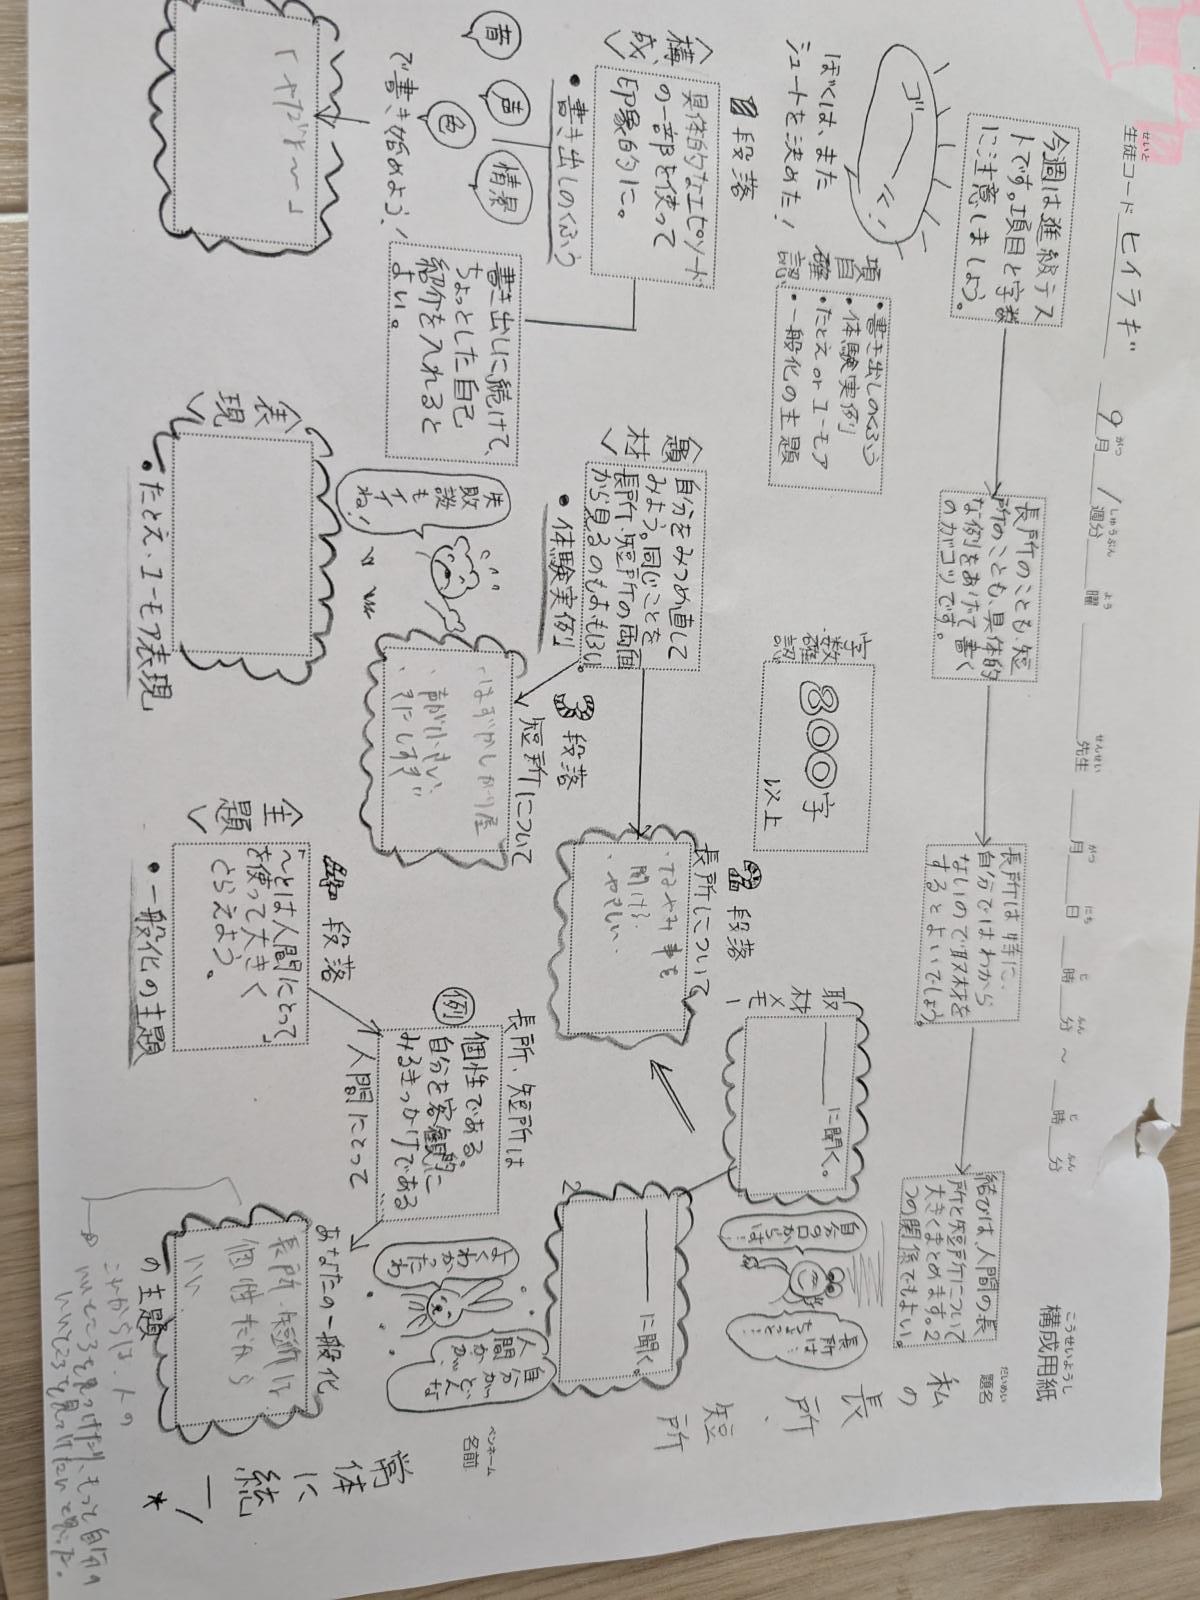 構成用紙
こうせいようし
題名
だいめい
私の長所、短所
ペンネーム
名前
常体に統一
生徒コード ヒイラギ 9月 1週分 曜 先生 月 日 時 分 ~ 時 分
せいと
がつ
しゅうぶん
よう
せんせい
がつ
にち
じ
ふん
じ
ふん
今週は進級テス
トです。項目と字数
に注意しましょう。
長所のことも、短
所のことも、具体的
な例をあげて書く
のがコツです。
長所は特に、
自分ではわから
ないので取材を
するとよいでしょう。
結びは、人間の長
所と短所について
大きくまとめます。2
つの関係でもよい。
ゴーール!
ぼくは、また
シュートを決めた!
項目確認
・書き出しのくふう
・体験実例
・たとえ or ユーモア
・一般化の主題
字数確認
800字
以上
取材メモ
1
に聞く。
自分の口からは…
長所は
ちょっと…
2
に聞く。
<構成>
段落
具体的なエピソード
の一部を使って
印象的に。
・書き出しのくふう
音
声
色
情景
で書き始めよう!
書き出しに続けて、
ちょっとした自己
紹介を入れると
よい。
<題材>
自分をみつめ直して
みよう。同じことを
長所、短所の両面
から見るのもおもしろい。
・体験実例
失敗談もイイね!
段落
短所について
・はずかしがり屋
・声が小さい
気にしすぎ
段落
長所について
・なやみ事を
聞ける
・やさしい
<表現>
・たとえ・ユーモア表現
<主題>
段落
「〜とは人間にとって」
を使って大きく
とらえよう。
・一般化の主題
長所、短所は
例
個性である。
自分を客観的に
みるきっかけである
人間にとって
よくわかったわ
自分がどんな
人間かが…
あなたの一般化
の主題
長所、短所は
個性だから
いい
これからは、人の
いいところを見つけたり、もっと自分の
いいところを見つけたいと思った。